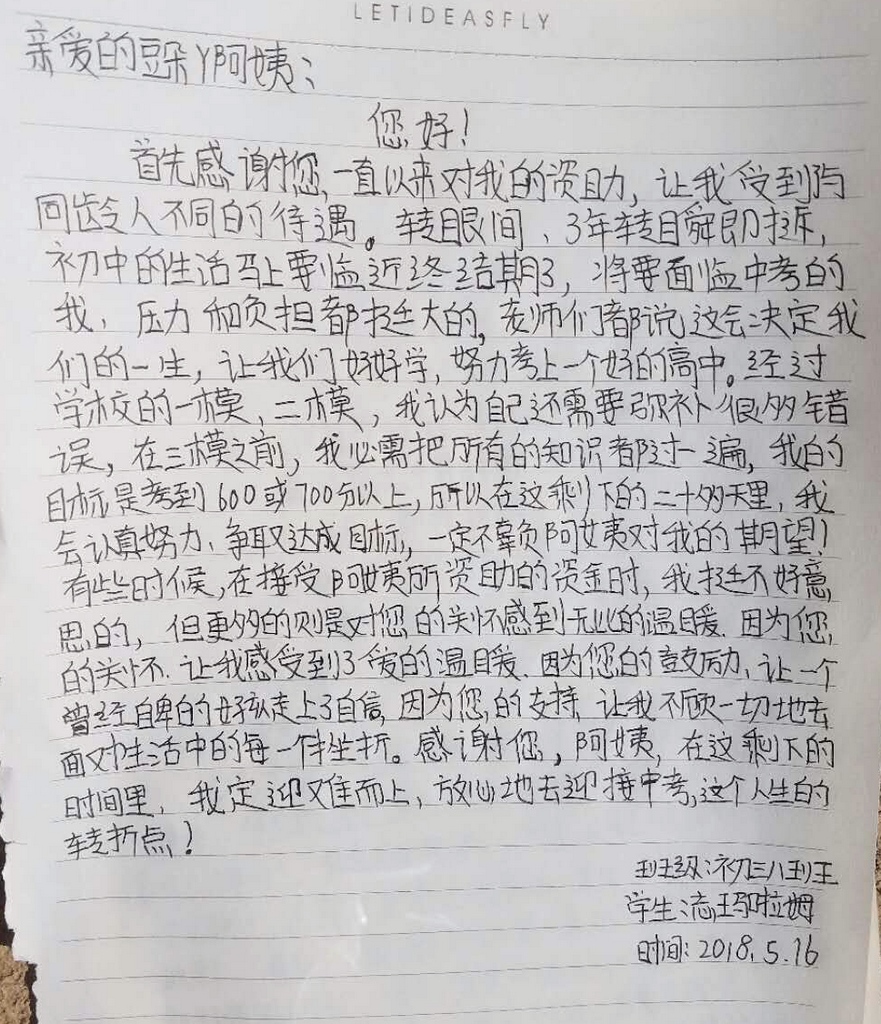 LETIDEASFLY
亲爱的豆朵丫阿姨：
您好！
首先感谢您，一直以来对我的资助，让我受到与
同龄人不同的待遇。转眼间、3年转目舜即拆，
初中的生活马上要临近终结期了，将要面临中考的
我，压力和负担都挺大的，老师们都说这会决定我
们的一生，让我们好好学，努力考上一个好的高中。经过
学校的一模，二模，我认为自己还需要弥补很多错
误，在三模之前，我必需把所有的知识都过一遍，我的
目标是考到600或700分以上，所以在这剩下的二十多天里，我
会认真努力，争取达成目标，一定不辜负阿姨对我的期望！
有些时候，在接受阿姨所资助的资金时，我挺不好意
思的，但更多的则是对您的关怀感到无比的温暖.因为您
的关怀.让我感受到了爱的温暖.因为您的鼓励，让一个
曾经自卑的女孩走上了自信，因为您的支持，让我不顾一切地去
面对生活中的每一件坐折。感谢您，阿姨，在这剩下的
时间里，我定迎难而上，放心地去迎接中考，这个人生的
转折点！
班级：初三八班
学生：玛拉姆
时间：2018.5.16